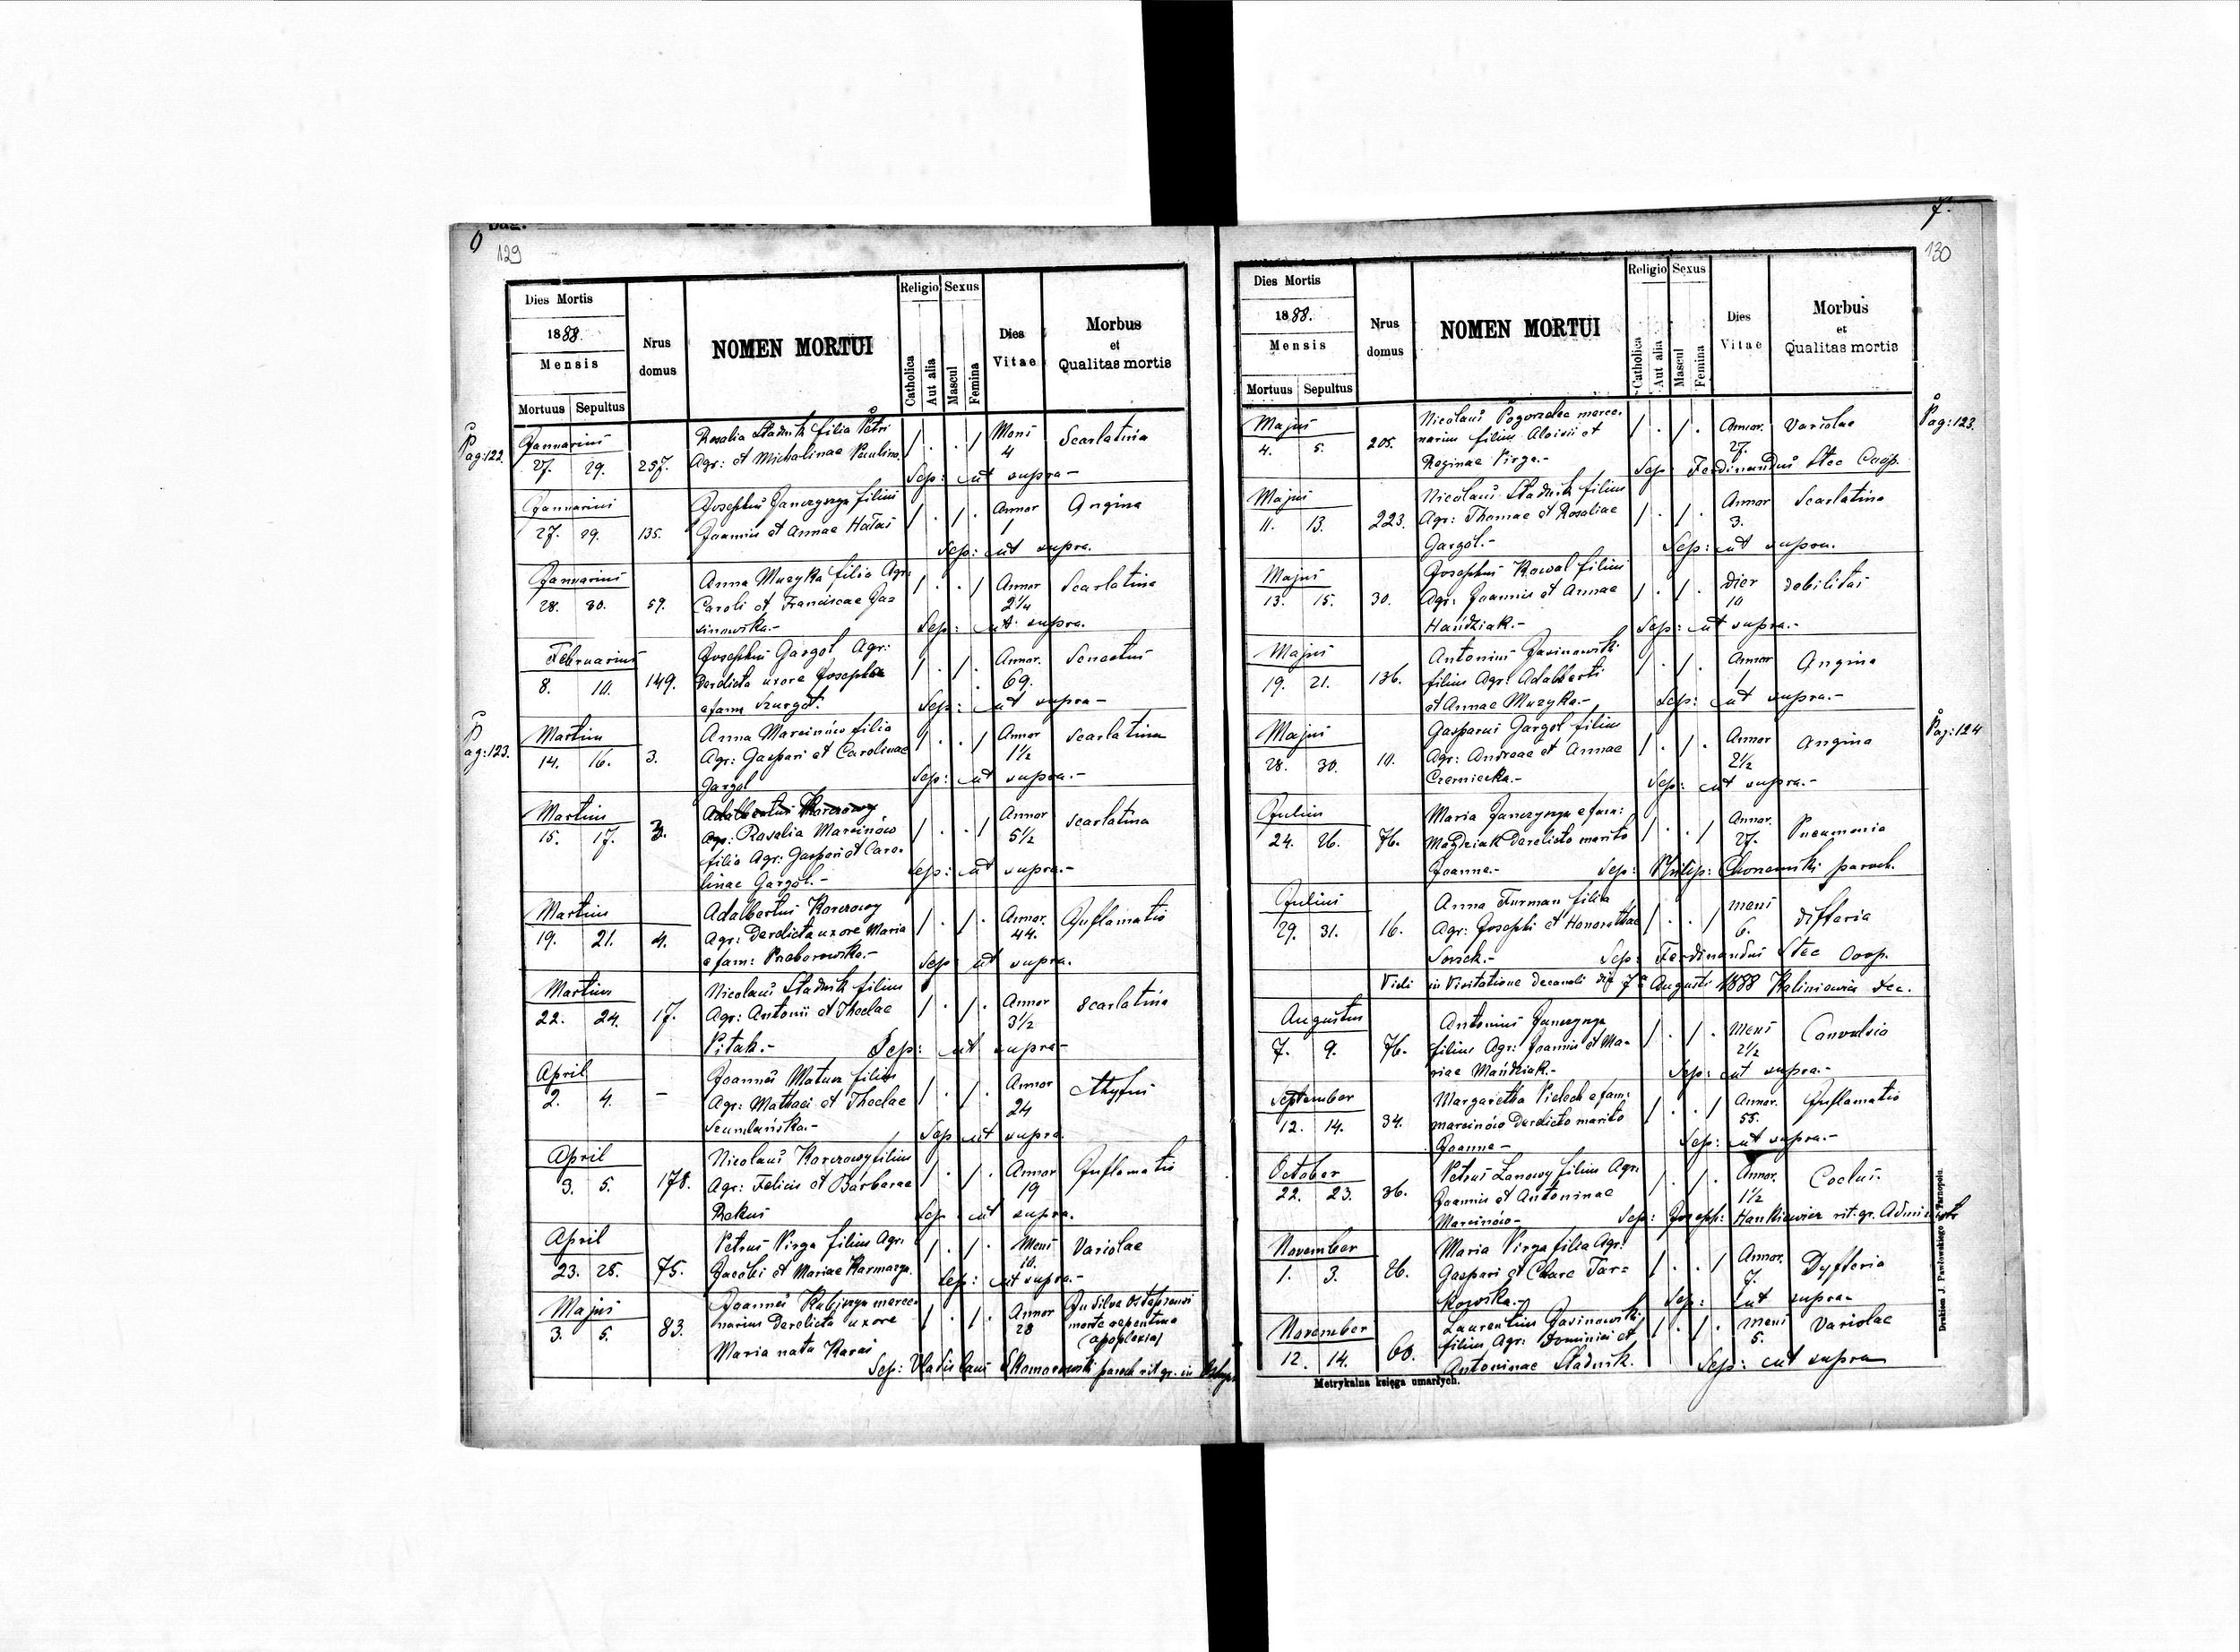 129
Dies Mortis
1888.
Mensis
Mortuus Sepultus
Nrus domus
NOMEN MORTUI
Religio Sexus
Catholica
Aut alia
Mascul
Femina
Dies Vitae
Morbus
et
Qualitas mortis
Pag: 122.
Januarius
Rosalia Stadnik filia Petri
27. 29. 257. Agr: et Michalinae Paulina / . . / Mens 4 Scarlatina
Sep: ut supra –
Januarius
Josephus Janczyszyn filius
27. 29. 135. Joannis et Annae Hałas / . / . Annor 1 Angina
Sep: ut supra.
Januarius
Anna Muzyka filia Agr:
28. 30. 59. Caroli et Franciscae Ja= / . . / Annor 2 1/4 Scarlatina
sinowska.-
Sep: ut supra.
Februarius
Josephus Gargol Agr:
8. 10. 149. Derelicta uxore Josepha / . / . Annor. 69. Senectus
e fam Szurgot.
Sep: ut supra –
Pag: 123.
Martius
Anna Marcinów filia
14. 16. 3. Agr: Gaspari et Carolinae / . . / Annor 1 1/2 Scarlatina
Gargol
Sep: ut supra.-
Martius
Adalbertus Korczowy
15. 17. 3. Agr: Rosalia Marcinów / . . / Annor 5 1/2 scarlatina
filia Agr: Gaspari et Caro-
linae Gargol.-
Sep: ut supra.-
Martius
Adalbertus Korczowy
19. 21. 4. Agr: Derelicta uxore Maria / . / . Annor. 44. Inflamatio
e fam:
Sep ut supra.
Martius
Nicolaus Stadnik filius
22. 24. 17. Agr: Antonii et Theclae / . / . Annor 3 1/2 Scarlatina
Pitak.-
Sep: ut supra-
April
Joannes Matusz filius
2. 4. – Agr: Mathaei et Theclae / . / . Annor 24 thyfus
Szumlańska.-
Sep ut supra.
April
Nicolaus Korczowy filius
3. 5. 178. Agr: Felicis et Barbarae / . / . Annor 19 Inflamatio
Rekus
Sep. ut supra.
April
Petrus Pirga filius Agr:
23. 25. 75. Jacobi et Mariae Karmazyn / . / . Mens 10. Variolae
Sep: ut supra.-
Majus
Joannes merce-
3. 5. 83. narius Derelicta uxore / . / . Annor 28 In silva
morte repentina
(apoplexia)
Maria nata Karaś
Sep: Vladislaus Komorowski paroch rit. gr. in
7.
130
Dies Mortis
1888.
Mensis
Mortuus Sepultus
Nrus domus
NOMEN MORTUI
Religio Sexus
Catholica
Aut alia
Mascul
Femina
Dies Vitae
Morbus
et
Qualitas mortis
Pag: 123.
Majus
Nicolaus Pogorzelec merce-
4. 5. 205. narius filius Aloisii et / . / . Annor. 27. Variolae
Reginae Pirga.-
Sep: Ferdinandus Stec Coop.
Majus
Nicolaus Stadnik filius
11. 13. 223. Agr: Thomae et Rosaliae / . / . Annor 3. Scarlatina
Gargol.-
Sep: ut supra.
Majus
Josephus Kowal filius
13. 15. 30. Agr: Joannis et Annae / . / . Dier 10 debilitas
Hańdziak.-
Sep: ut supra.-
Majus
Antonius Jasinowski
19. 21. 136. filius Agr: Adalberti / . / . Annor 1 Angina
et Annae Muzyka.-
Sep: ut supra.-
Pag: 124
Majus
Gasparus Gargol filius
28. 30. 10. Agr: Andreae et Annae / . / . Annor 2 1/2 Angina
Czerniecka.-
Sep: ut supra.-
Julius
Maria Janczyszyn e fam:
24. 26. 76. Mańdziak Derelicto marito / . . / Annor. 27. Pneumonia
Joanne.-
Sep: Philip: paroch.
Julius
Anna Furman filia
29. 31. 16. Agr: Josephi et Honorathae / . . / mens 6. difteria
Sep: Ferdinandus Stec Coop.
Vidi in Visitatione Decanali die 7a Augusti 1888 Kaliniewicz Dec.
Augustus
Antonius Janczyszyn
7. 9. 76. filius Agr: Joannis et Ma- / . / . Mens 2 1/2 Convulsio
riae Mańdziak.-
Sep: ut supra.-
September
Margaretha Pielech e fam:
12. 14. 34. marcinów Derelicto marito / . . / Annor. 55. Inflamatio
Joanne –
Sep: ut supra.-
October
Petrus Lanowy filius Agr.
22. 23. 36. Joannis et Antoninae / . / . Annor. 1 1/2 Coclus.
Marcinów-
Sep: Joseph: Hankiewicz rit. gr. Administr
November
Maria Pirga filia Agr:
1. 3. 26. Gaspari et Clare Tar= / . . / Annor. 7. Dyfteria
kowska.-
Sep: ut supra-
November
Laurentius Jasinowski
12. 14. 60. filius Agr: Dominici et / . / . mens 5. Variolae
Antoninae Stadnik.
Sep: ut supra
Metrykalna księga umarłych.
Drukiem J. Pawłowskiego w Tarnopolu.